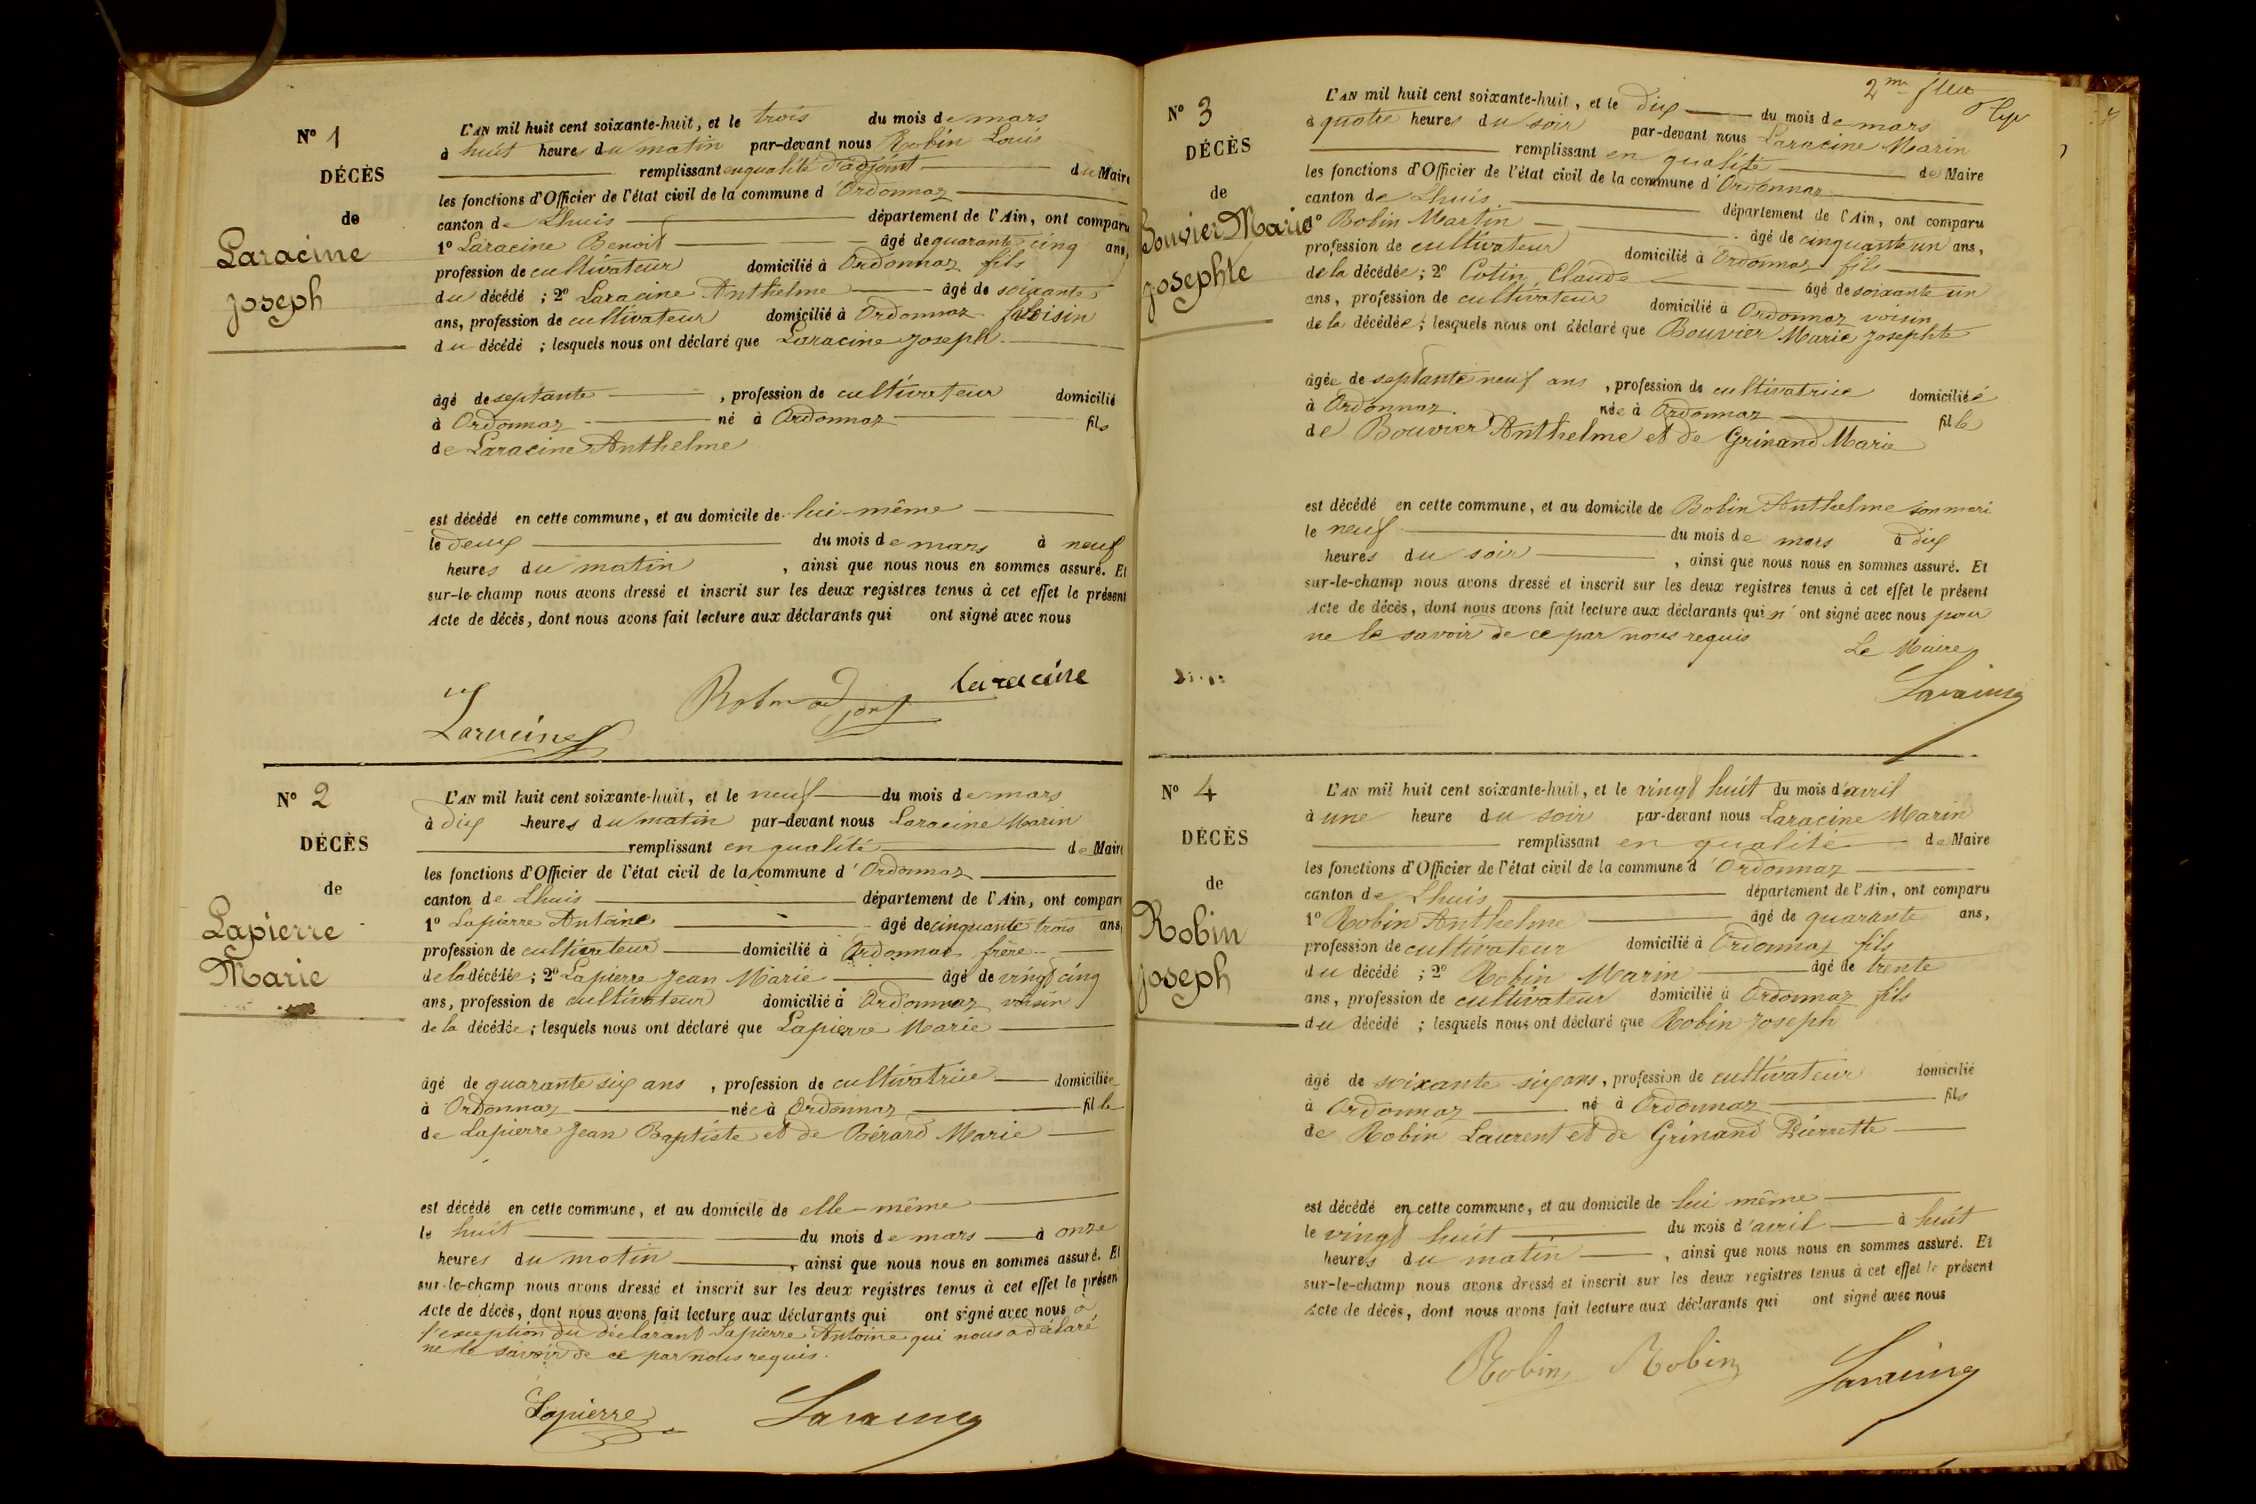 N° 1
DÉCÈS
de
Laracine
Joseph
L'AN mil huit cent soixante-huit, et le trois du mois de mars
à huit heures du matin par-devant nous Robin Louis
remplissant en qualité d'adjoint du Maire
les fonctions d'Officier de l'état civil de la commune d'Ordonnaz
canton de Lhuis département de l'Ain, ont comparu
1° Laracine Benoit âgé de quarante cinq ans,
profession de cultivateur domicilié à Ordonnaz fils
du décédé ; 2° Laracine Anthelme âgé de soixante
ans, profession de cultivateur domicilié à Ordonnaz voisin
du décédé ; lesquels nous ont déclaré que Laracine Joseph
âgé de septante , profession de cultivateur domicilié
à Ordonnaz né à Ordonnaz fils
de Laracine Anthelme
est décédé en cette commune, et au domicile de lui-même
le deux du mois de mars à neuf
heures du matin , ainsi que nous nous en sommes assuré. Et
sur-le-champ nous avons dressé et inscrit sur les deux registres tenus à cet effet le présent
Acte de décès, dont nous avons fait lecture aux déclarants qui ont signé avec nous
Laracine Robin adjoint Laracine
N° 2
DÉCÈS
de
Lapierre
Marie
L'AN mil huit cent soixante-huit, et le neuf du mois de mars
à dix heures du matin par-devant nous Laracine Marin
remplissant en qualité de Maire
les fonctions d'Officier de l'état civil de la commune d'Ordonnaz
canton de Lhuis département de l'Ain, ont comparu
1° Lapierre Antoine âgé de cinquante trois ans,
profession de cultivateur domicilié à Ordonnaz frère
de la décédée ; 2° Lapierre Jean Marie âgé de vingt cinq
ans, profession de cultivateur domicilié à Ordonnaz voisin
de la décédée ; lesquels nous ont déclaré que Lapierre Marie
âgé de quarante six ans , profession de cultivatrice domiciliée
à Ordonnaz née à Ordonnaz fille
de Lapierre Jean Baptiste et de Bérard Marie
est décédé en cette commune, et au domicile de elle-même
le huit du mois de mars à onze
heures du matin , ainsi que nous nous en sommes assuré. Et
sur-le-champ nous avons dressé et inscrit sur les deux registres tenus à cet effet le présent
Acte de décès, dont nous avons fait lecture aux déclarants qui ont signé avec nous à
l'exception du déclarant Lapierre Antoine qui nous a déclaré
ne le savoir de ce par nous requis.
Lapierre Laracine
2me
N° 3
DÉCÈS
de
Bouvier Marie
Josephte
L'AN mil huit cent soixante-huit, et le dix du mois de mars
à quatre heures du soir par-devant nous Laracine Marin
remplissant en qualité de Maire
les fonctions d'Officier de l'état civil de la commune d'Ordonnaz
canton de Lhuis département de l'Ain, ont comparu
1° Bobin Martin âgé de cinquante un ans,
profession de cultivateur domicilié à Ordonnaz fils
de la décédée ; 2° Cotin Claude âgé de soixante un
ans, profession de cultivateur domicilié à Ordonnaz voisin
de la décédée ; lesquels nous ont déclaré que Bouvier Marie Josephte
âgée de septante neuf ans , profession de cultivatrice domiciliée
à Ordonnaz née à Ordonnaz fille
de Bouvier Anthelme et de Grinand Marie
est décédé en cette commune, et au domicile de Bobin Anthelme son mari
le neuf du mois de mars à dix
heures du soir , ainsi que nous nous en sommes assuré. Et
sur-le-champ nous avons dressé et inscrit sur les deux registres tenus à cet effet le présent
Acte de décès, dont nous avons fait lecture aux déclarants qui n'ont signé avec nous pour
ne le savoir de ce par nous requis
Le Maire
Laracine
N° 4
DÉCÈS
de
Robin
Joseph
L'AN mil huit cent soixante-huit, et le vingt huit du mois d'avril
à une heure du soir par-devant nous Laracine Marin
remplissant en qualité de Maire
les fonctions d'Officier de l'état civil de la commune d'Ordonnaz
canton de Lhuis département de l'Ain, ont comparu
1° Robin Anthelme âgé de quarante ans,
profession de cultivateur domicilié à Ordonnaz fils
du décédé ; 2° Robin Marin âgé de trente
ans, profession de cultivateur domicilié à Ordonnaz fils
du décédé ; lesquels nous ont déclaré que Robin Joseph
âgé de soixante six ans, profession de cultivateur domicilié
à Ordonnaz né à Ordonnaz fils
de Robin Laurent et de Grinand Pierrette
est décédé en cette commune, et au domicile de lui même
le vingt huit du mois d'avril à huit
heures du matin , ainsi que nous nous en sommes assuré. Et
sur-le-champ nous avons dressé et inscrit sur les deux registres tenus à cet effet le présent
Acte de décès, dont nous avons fait lecture aux déclarants qui ont signé avec nous
Robin Robin Laracine